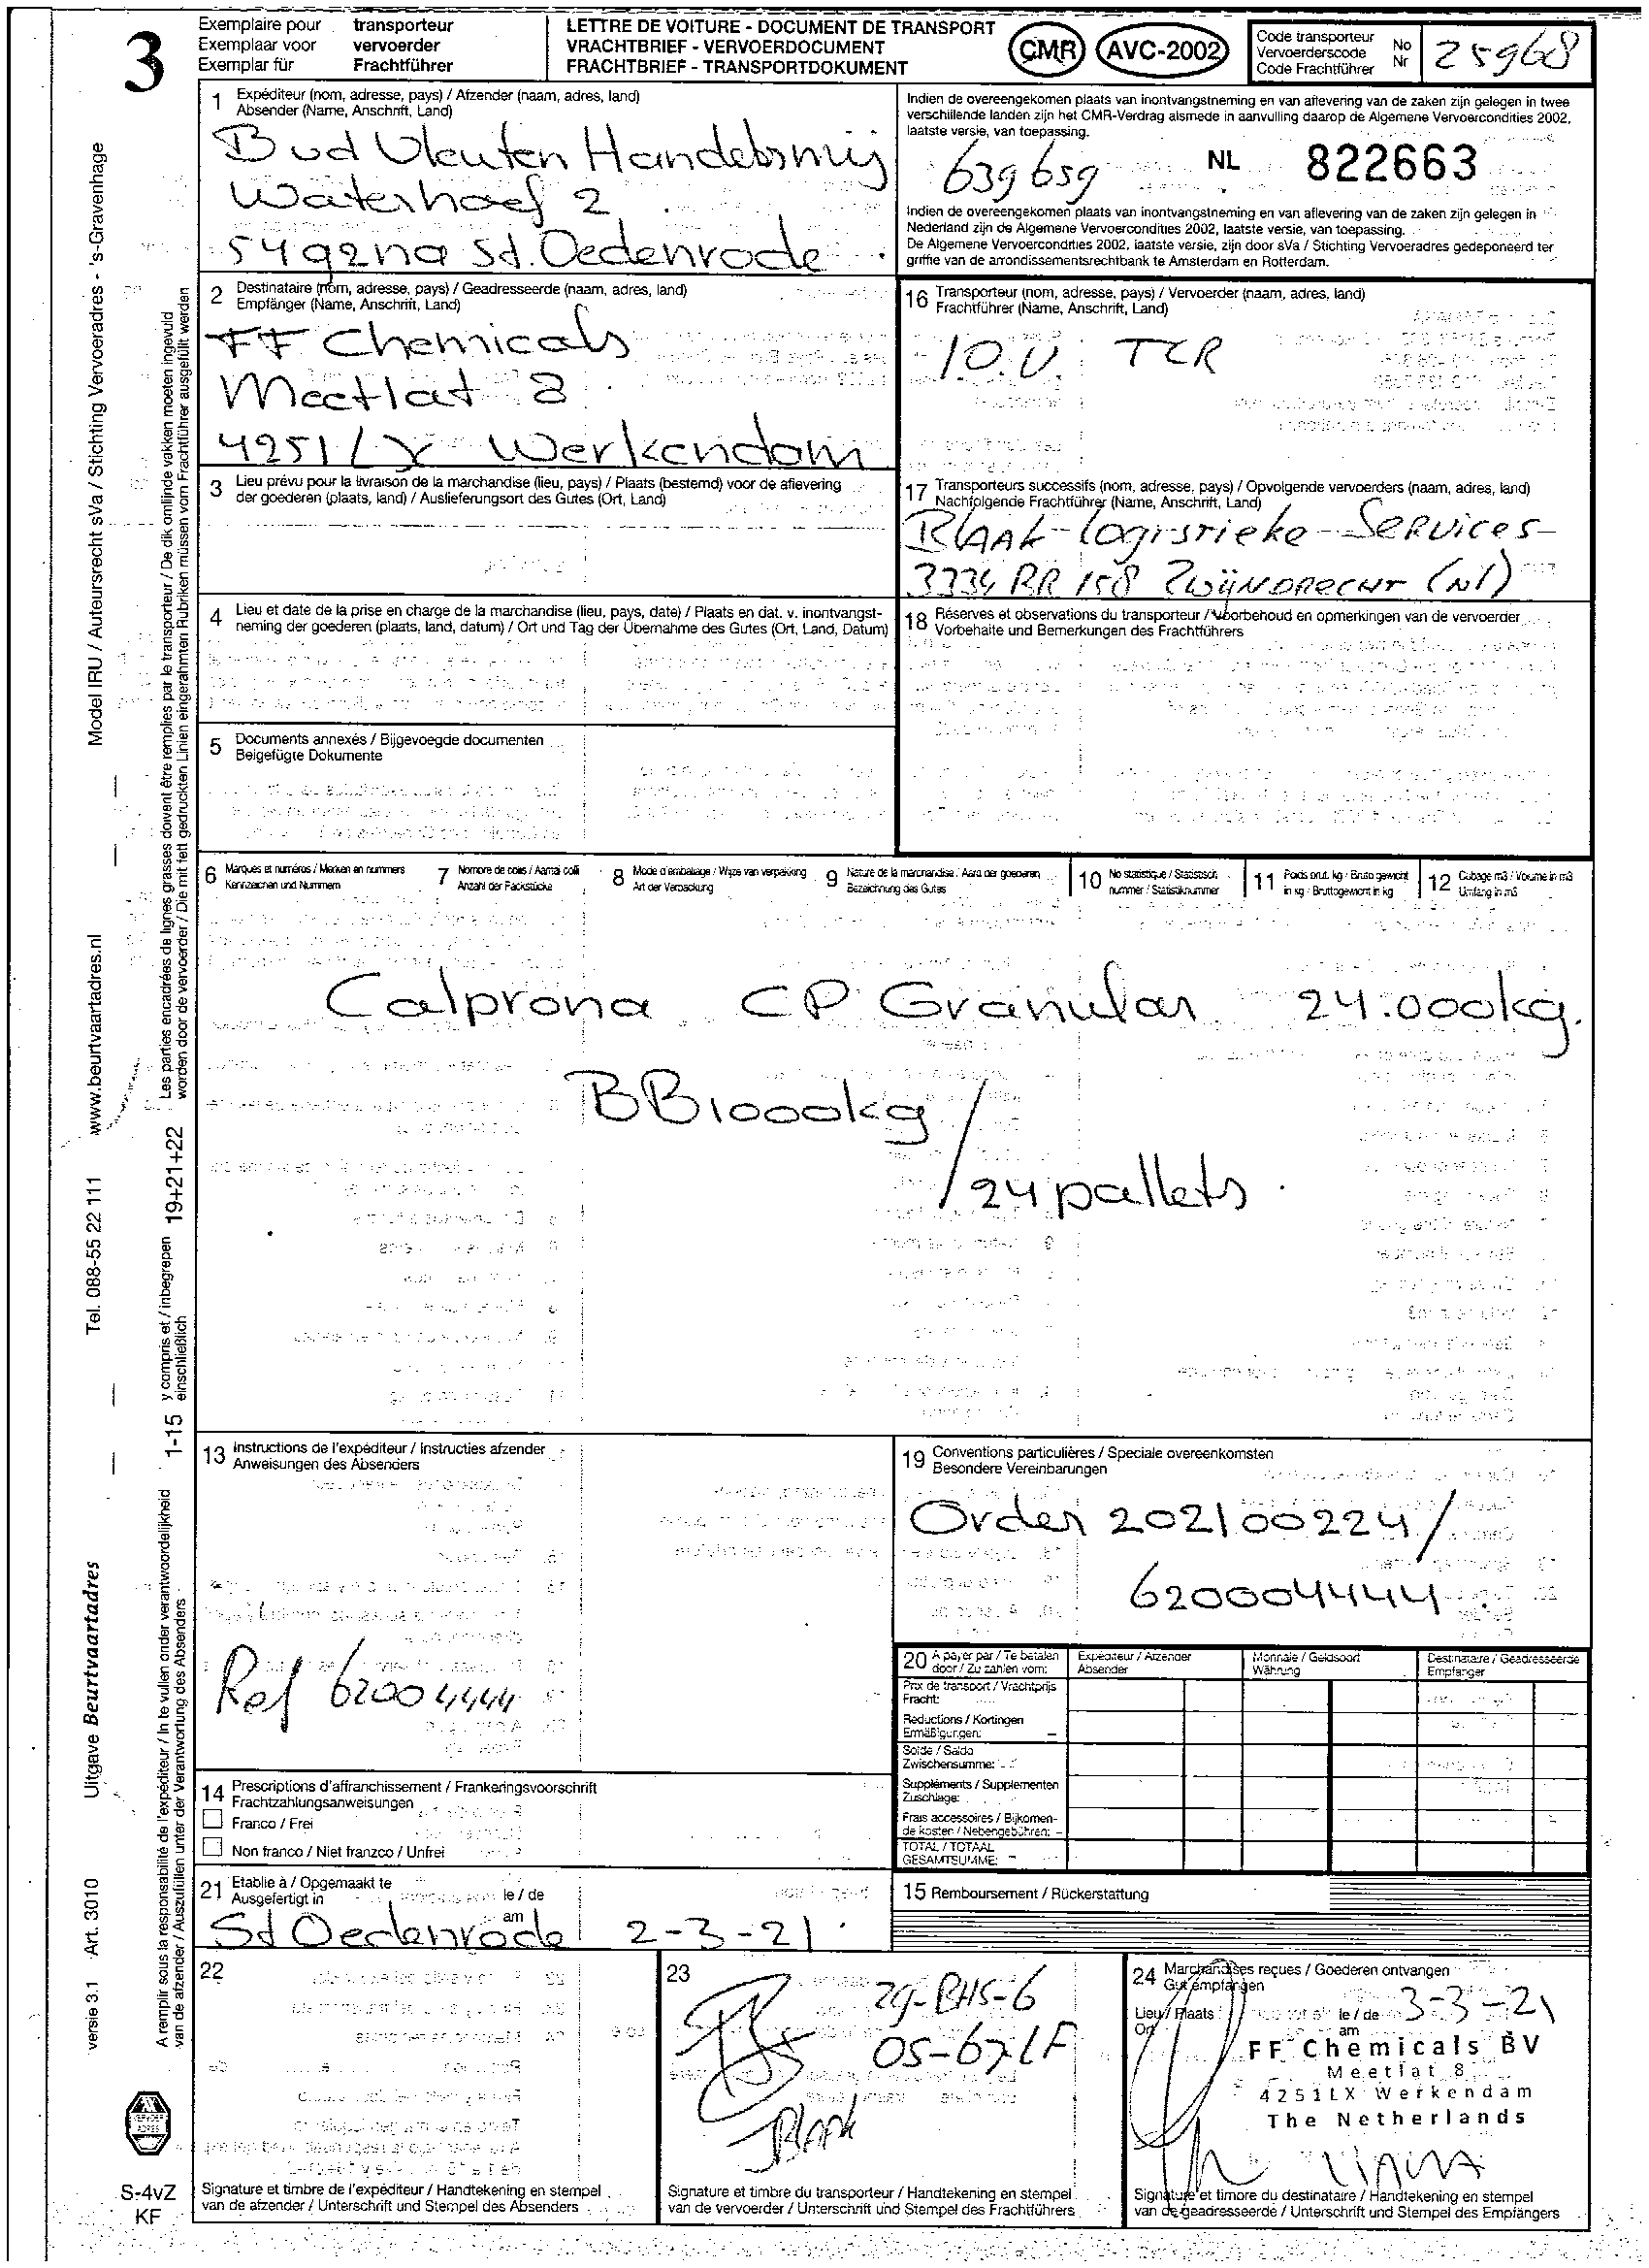 3
Exemplaire pour transporteur
Exemplaar voor vervoerder
Exemplar für Frachtführer
LETTRE DE VOITURE - DOCUMENT DE TRANSPORT
VRACHTBRIEF - VERVOERDOCUMENT
FRACHTBRIEF - TRANSPORTDOKUMENT
CMR AVC-2002
Code transporteur
Vervoerderscode
Code Frachtführer
No
Nr
25968
1 Expéditeur (nom, adresse, pays) / Afzender (naam, adres, land)
Absender (Name, Anschrift, Land)
Bud Vleuten Handelsmij
Waterhoef 2
5492na St. Oedenrode
Indien de overeengekomen plaats van inontvangstneming en van aflevering van de zaken zijn gelegen in twee
verschillende landen zijn het CMR-Verdrag alsmede in aanvulling daarop de Algemene Vervoercondities 2002,
laatste versie, van toepassing.
639659 NL 822663
Indien de overeengekomen plaats van inontvangstneming en van aflevering van de zaken zijn gelegen in
Nederland zijn de Algemene Vervoercondities 2002, laatste versie, van toepassing.
De Algemene Vervoercondities 2002, laatste versie, zijn door sVa / Stichting Vervoeradres gedeponeerd ter
griffie van de arrondissementsrechtbank te Amsterdam en Rotterdam.
2 Destinataire (nom, adresse, pays) / Geadresseerde (naam, adres, land)
Empfänger (Name, Anschrift, Land)
FF Chemicals
Meetlat 8
4251LX Werkendam
16 Transporteur (nom, adresse, pays) / Vervoerder (naam, adres, land)
Frachtführer (Name, Anschrift, Land)
I.O.V. TCR
3 Lieu prévu pour la livraison de la marchandise (lieu, pays) / Plaats (bestemd) voor de aflevering
der goederen (plaats, land) / Auslieferungsort des Gutes (Ort, Land)
17 Transporteurs successifs (nom, adresse, pays) / Opvolgende vervoerders (naam, adres, land)
Nachfolgende Frachtführer (Name, Anschrift, Land)
Blaak-logistieke-Services-
3334 BR 158 Zwijndrecht (Nl)
4 Lieu et date de la prise en charge de la marchandise (lieu, pays, date) / Plaats en dat. v. inontvangst-
neming der goederen (plaats, land, datum) / Ort und Tag der Übernahme des Gutes (Ort, Land, Datum)
18 Réserves et observations du transporteur / Voorbehoud en opmerkingen van de vervoerder
Vorbehalte und Bemerkungen des Frachtführers
5 Documents annexés / Bijgevoegde documenten
Beigefügte Dokumente
6 Marques et numéros / Merken en nummers
Kennzeichen und Nummern
7 Nombre de colis / Aantal colli
Anzahl der Packstücke
8 Mode d'emballage / Wijze van verpakking
Art der Verpackung
9 Nature de la marchandise / Aard der goederen
Bezeichnung des Gutes
10 No statistique / Statistisch
nummer / Statistiknummer
11 Poids brut, kg / Bruto gewicht
in kg / Bruttogewicht in kg
12 Cubage m3 / Volume in m3
Umfang in m3
Calprona CP Granular 24.000kg.
BB1000kg /
24 pallets.
13 Instructions de l'expéditeur / Instructies afzender
Anweisungen des Absenders
Ref 62004444
19 Conventions particulières / Speciale overeenkomsten
Besondere Vereinbarungen
Order 202100224 /
620004444
20 A payer par / Te betalen
door / Zu zahlen vom:
Expéditeur / Afzender
Absender
Monnaie / Geldsoort
Währung
Destinataire / Geadresseerde
Empfänger
Prix de transport / Vrachtprijs
Fracht:
Reductions / Kortingen
Ermäßigungen: –
Solde / Saldo
Zwischensumme:
Suppléments / Supplementen
Zuschläge:
Frais accessoires / Bijkomen-
de kosten / Nebengebühren: –
TOTAL / TOTAAL
GESAMTSUMME:
14 Prescriptions d'affranchissement / Frankeringsvoorschrift
Frachtzahlungsanweisungen
Franco / Frei
Non franco / Niet franzco / Unfrei
21 Etablie à / Opgemaakt te
Ausgefertigt in
le / de
am
St Oedenrode 2-3-21
15 Remboursement / Rückerstattung
22
Signature et timbre de l'expéditeur / Handtekening en stempel
van de afzender / Unterschrift und Stempel des Absenders
23
29-BHS-6
OS-67-LF
Blaak
Signature et timbre du transporteur / Handtekening en stempel
van de vervoerder / Unterschrift und Stempel des Frachtführers
24 Marchandises reçues / Goederen ontvangen
Gut empfangen
Lieu / Plaats
Ort
le / de
am
3-3-21
FF Chemicals BV
Meetlat 8
4251LX Werkendam
The Netherlands
Signature et timbre du destinataire / Handtekening en stempel
van de geadresseerde / Unterschrift und Stempel des Empfängers
Model IRU / Auteursrecht sVa / Stichting Vervoeradres - 's-Gravenhage
www.beurtvaartadres.nl
Tel. 088-55 22 111
Uitgave Beurtvaartadres
Art. 3010
versie 3.1
Les parties encadrées de lignes grasses doivent être remplies par le transporteur / De dik omlijnde vakken moeten ingevuld
worden door de vervoerder / Die mit fett gedruckten Linien eingerahmten Rubriken müssen vom Frachtführer ausgefüllt werden
19+21+22
y compris et / inbegrepen
einschließlich
1-15
A remplir sous la responsabilité de l'expéditeur / In te vullen onder verantwoordelijkheid
van de afzender / Auszufüllen unter der Verantwortung des Absenders
S-4vZ
KF